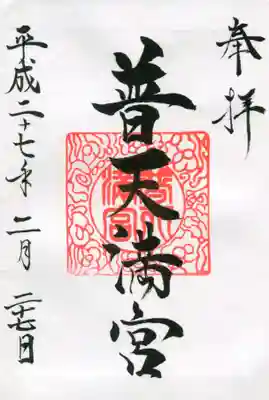 奉拝
普天満宮
平成二十七年二月二七日